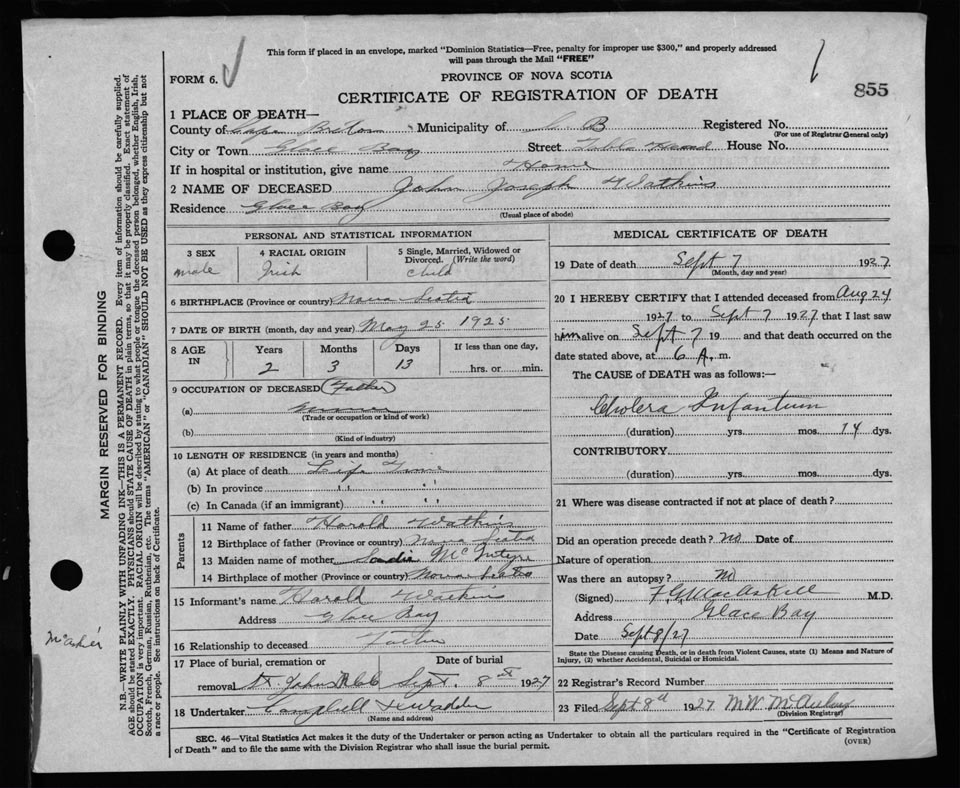 This form if placed in an envelope, marked "Dominion Statistics—Free, penalty for improper use $300," and properly addressed
will pass through the Mail "FREE"
FORM 6.
PROVINCE OF NOVA SCOTIA
855
CERTIFICATE OF REGISTRATION OF DEATH
1 PLACE OF DEATH—
County of Cape Breton Municipality of C B Registered No.
(For use of Registrar General only)
City or Town Glace Bay Street Table Head House No.
If in hospital or institution, give name Home
2 NAME OF DECEASED John Joseph Watkins
Residence Glace Bay
(Usual place of abode)
PERSONAL AND STATISTICAL INFORMATION
3 SEX 4 RACIAL ORIGIN 5 Single, Married, Widowed or
Divorced. (Write the word)
male Irish child
6 BIRTHPLACE (Province or country) Nova Scotia
7 DATE OF BIRTH (month, day and year) May 25 1925
8 AGE IN Years Months Days If less than one day,
2 3 13 hrs. or min.
9 OCCUPATION OF DECEASED (Father)
(a)
(Trade or occupation or kind of work)
(b)
(Kind of industry)
10 LENGTH OF RESIDENCE (in years and months)
(a) At place of death Life Time
(b) In province " "
(c) In Canada (if an immigrant) " "
Parents
11 Name of father Harold Watkins
12 Birthplace of father (Province or country) Nova Scotia
13 Maiden name of mother Sadie McIntyre
14 Birthplace of mother (Province or country) Nova Scotia
15 Informant's name Harold Watkins
Address Glace Bay
16 Relationship to deceased Father
17 Place of burial, cremation or Date of burial
removal St. Johns Sept. 8 1927
18 Undertaker Campbell
(Name and address)
MEDICAL CERTIFICATE OF DEATH
19 Date of death Sept 7 1927
(Month, day and year)
20 I HEREBY CERTIFY that I attended deceased from Aug 24
1927 to Sept 7 1927 that I last saw
him alive on Sept 7 19 and that death occurred on the
date stated above, at 6 A. m.
The CAUSE of DEATH was as follows:—
Cholera Infantum
(duration) yrs. mos. 14 dys.
CONTRIBUTORY
(duration) yrs. mos. dys.
21 Where was disease contracted if not at place of death?
Did an operation precede death? no Date of
Nature of operation
Was there an autopsy? no
(Signed) F.G. MacAskill M.D.
Address Glace Bay
Date Sept 8/27
State the Disease causing Death, or in death from Violent Causes, state (1) Means and Nature of
Injury, (2) whether Accidental, Suicidal or Homicidal.
22 Registrar's Record Number
23 Filed Sept 8 1927 M.W.
(Division Registrar)
SEC. 46—Vital Statistics Act makes it the duty of the Undertaker or person acting as Undertaker to obtain all the particulars required in the "Certificate of Registration
of Death" and to file the same with the Division Registrar who shall issue the burial permit.
(OVER)
MARGIN RESERVED FOR BINDING
N.B.—WRITE PLAINLY WITH UNFADING INK—THIS IS A PERMANENT RECORD. Every item of information should be carefully supplied.
AGE should be stated EXACTLY. PHYSICIANS should STATE CAUSE OF DEATH in plain terms, so that it may be properly classified. Exact statement of
OCCUPATION is very important. RACIAL ORIGIN will be described by stating to what people or tongue the deceased person belonged, whether English, Irish,
Scotch, French, German, Russian, Ruthenian, etc. The terms "AMERICAN" or "CANADIAN" SHOULD NOT BE USED as they express citizenship but not
a race or people. See instructions on back of Certificate.